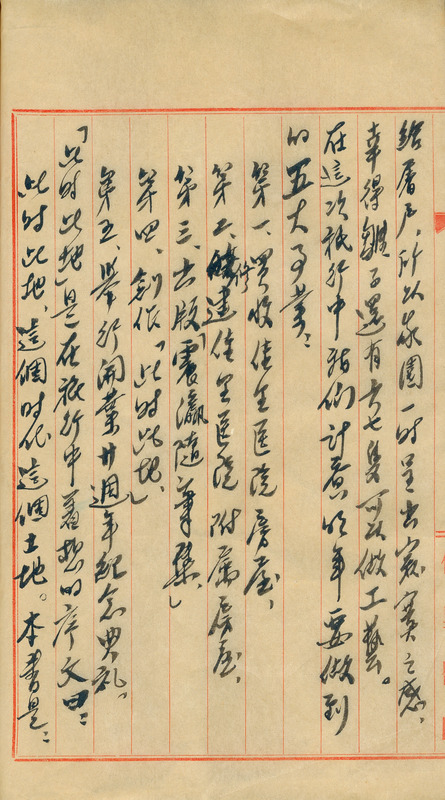 給屠戶，所以家園一时呈出寂寞之感，
幸得雛子還有六七隻可以做工藝。
在這次旅行中我們計畫明年要做到
的五大事業：
第一、買收佳里医院房屋，
第二、修建佳里医院附属房屋，
第三、出版「震瀛隨筆集」
第四、創作「此时此地」
第五、舉行開業廿週年紀念典礼。
「此时此地」是在旅行中着想的序文曰：
此时此地，這個时代這個土地。本書是：